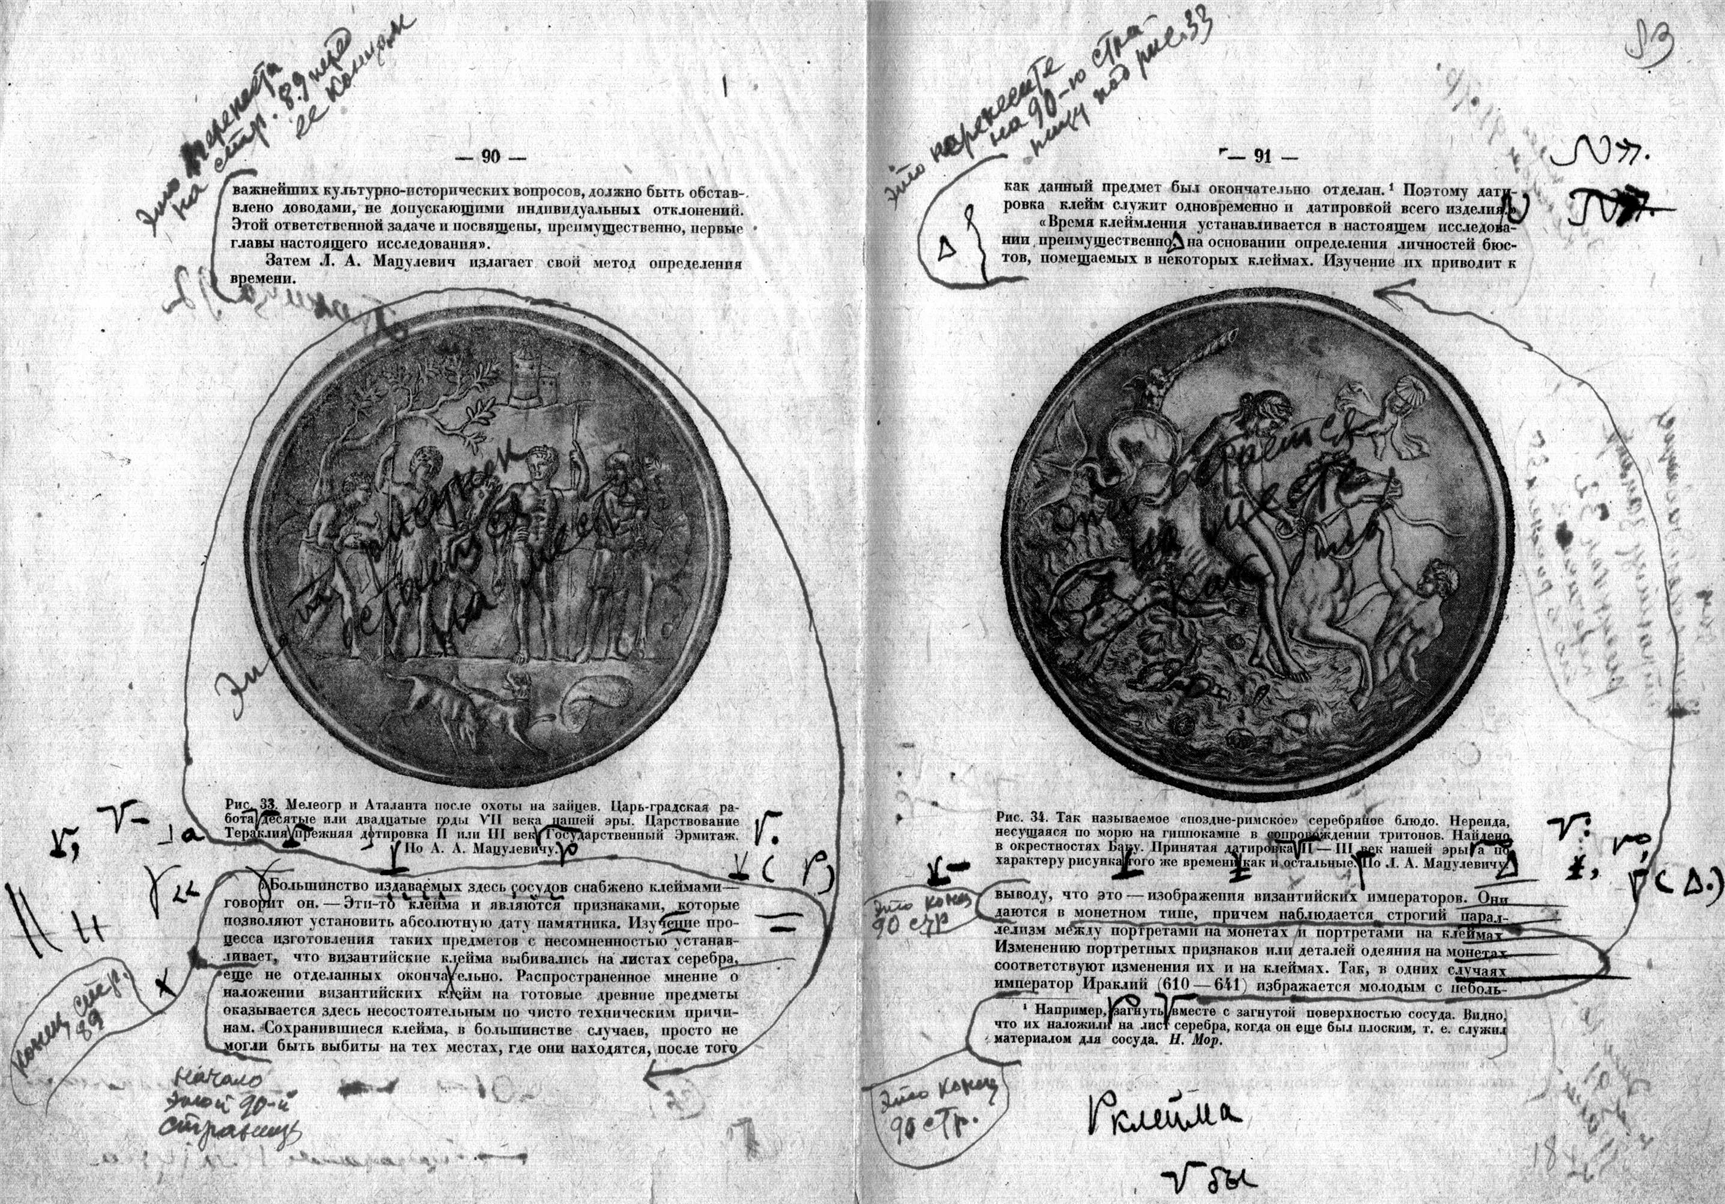 Это перенести
на стр. 89 перед
ее концом
— 90 —
важнейших культурно-исторических вопросов, должно быть обстав-
влено доводами, не допускающими индивидуальных отклонений.
Этой ответственной задаче и посвящены, преимущественно, первые
главы настоящего исследования».
Затем Л. А. Мацулевич излагает свой метод определения
времени.
Этот рисунок
остается
на месте
Рис. 33. Мелеогр и Аталанта после охоты на зайцев. Царь-градская ра-
бота десятые или двадцатые годы VII века нашей эры. Царствование
Тераклия прежняя дотировка II или III век Государственный Эрмитаж.
По А. А. Мацулевичу.
Большинство издаваемых здесь сосудов снабжено клеймами—
говорит он. — Эти-то клейма и являются признаками, которые
позволяют установить абсолютную дату памятника. Изучение про-
цесса изготовления таких предметов с несомненностью устанав-
ливает, что византийские клейма выбивались на листах серебра,
еще не отделанных окончательно. Распространенное мнение о
наложении византийских клейм на готовые древние предметы
оказывается здесь несостоятельным по чисто техническим причи-
нам. Сохранившиеся клейма, в большинстве случаев, просто не
могли быть выбиты на тех местах, где они находятся, после того
конец стр.
89
начало
этой 90-й
страницы
Это перенесите
на 90-ю стра-
ницу под рис. 33
— 91 —
как данный предмет был окончательно отделан.¹ Поэтому дати-
ровка клейм служит одновременно и датировкой всего изделия.
«Время клеймления устанавливается в настоящем исследова-
нии преимущественно на основании определения личностей бюс-
тов, помещаемых в некоторых клеймах. Изучение их приводит к
остается
на месте
как было
Рис. 34. Так называемое «поздне-римское» серебряное блюдо. Нереида,
несущаяся по морю на гиппокампе в сопровождении тритонов. Найдено
в окрестностях Баку. Принятая датировка II—III век нашей эры а по
характеру рисунка того же времени как и остальные. По Л. А. Мацулевичу.
Это конец
90 стр
выводу, что это — изображения византийских императоров. Они
даются в монетном типе, причем наблюдается строгий парал-
лелизм между портретами на монетах и портретами на клеймах.
Изменению портретных признаков или деталей одеяния на монетах
соответствуют изменения их и на клеймах. Так, в одних случаях
император Ираклий (610—641) изображается молодым с неболь-
¹ Например, загнуть вместе с загнутой поверхностью сосуда. Видно,
что их наложили на лист серебра, когда он еще был плоским, т. е. служил
материалом для сосуда. Н. Мор.
Это конец
90 стр.
клейма
бы